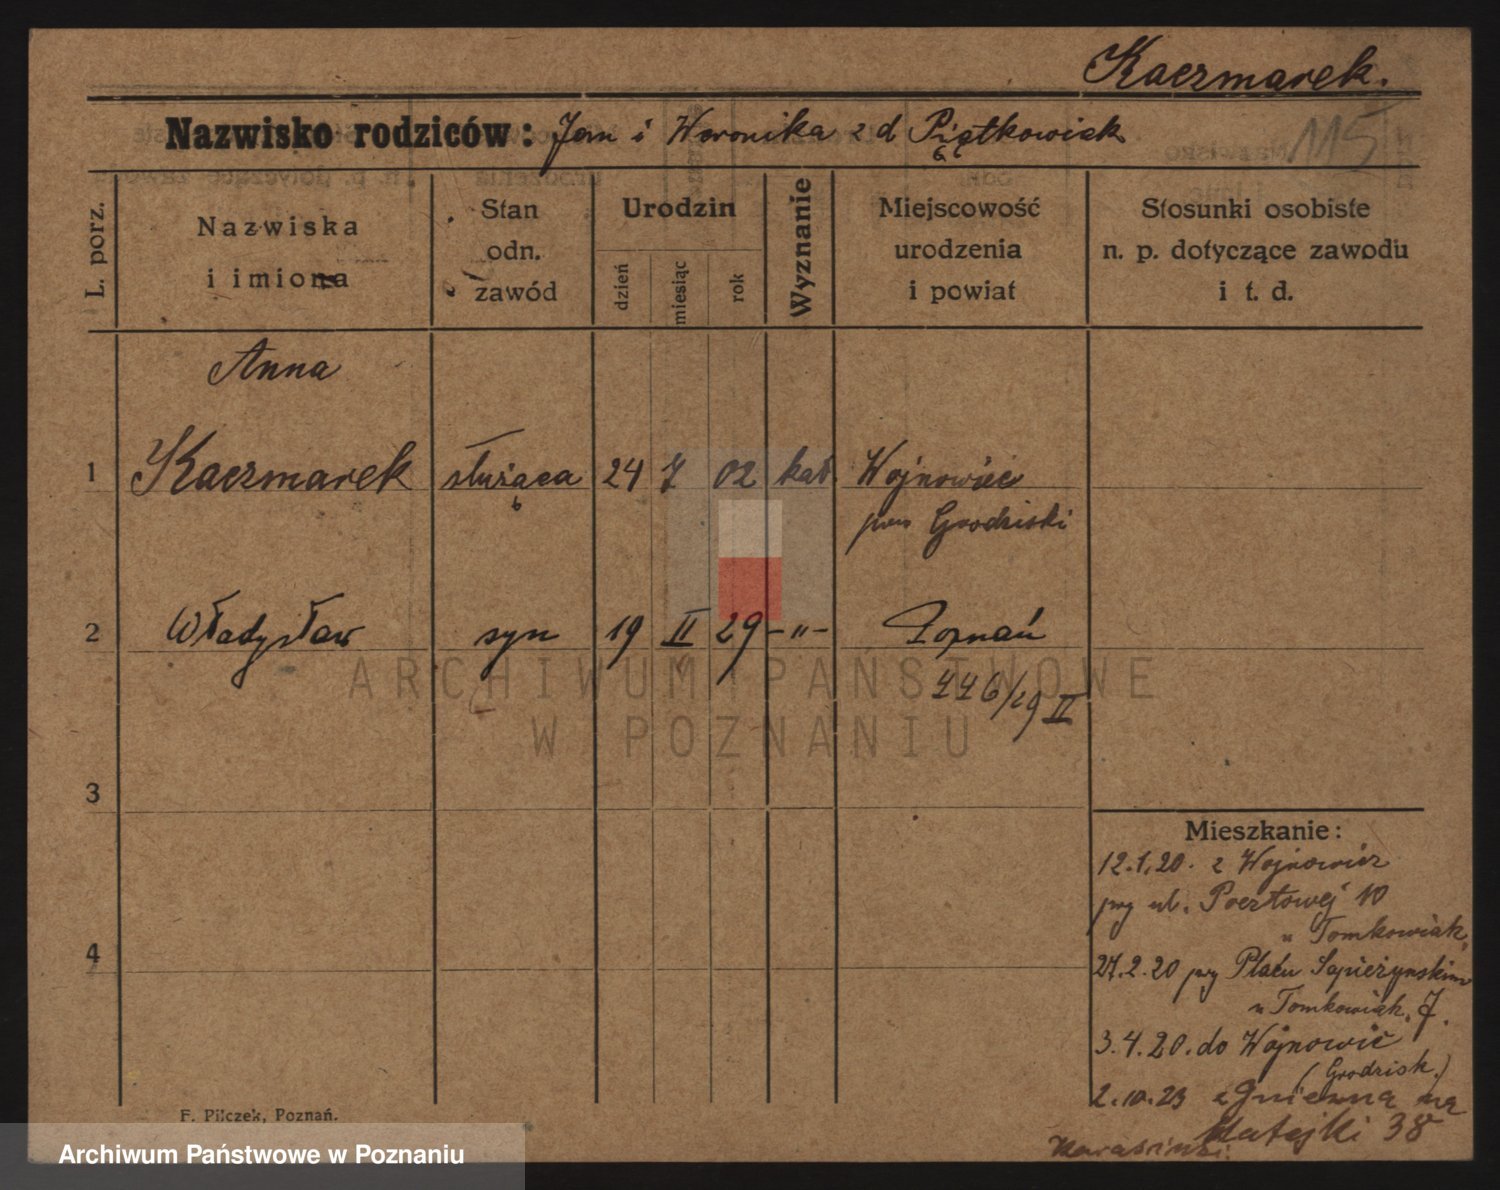 Kaczmarek.
Nazwisko rodziców: Jan i Weronika z d Piątkowiak
115
L. porz.
Nazwiska
i imiona
Stan
odn.
zawód
Urodzin
dzień
miesiąc
rok
Wyznanie
Miejscowość
urodzenia
i powiat
Stosunki osobiste
n. p. dotyczące zawodu
i t. d.
Anna
1 Kaczmarek służąca 24 7 02 kat. Wojnowice
pow Grodziski
2 Władysław syn 19 II 29 -"- Poznań
446/29 II
ARCHIWUM PAŃSTWOWE
W POZNANIU
3
4
Mieszkanie:
12.1.20. z Wojnowic
przy ul. Pocztowej 10
u Tomkowiak,
27.2.20 przy Placu Sapieżyńskim
u Tomkowiak. 7.
3.4.20. do Wojnowic
(Grodzisk.)
2.10.23 z Gniezna na
Matejki 38
F. Pilczek, Poznań.
Archiwum Państwowe w Poznaniu